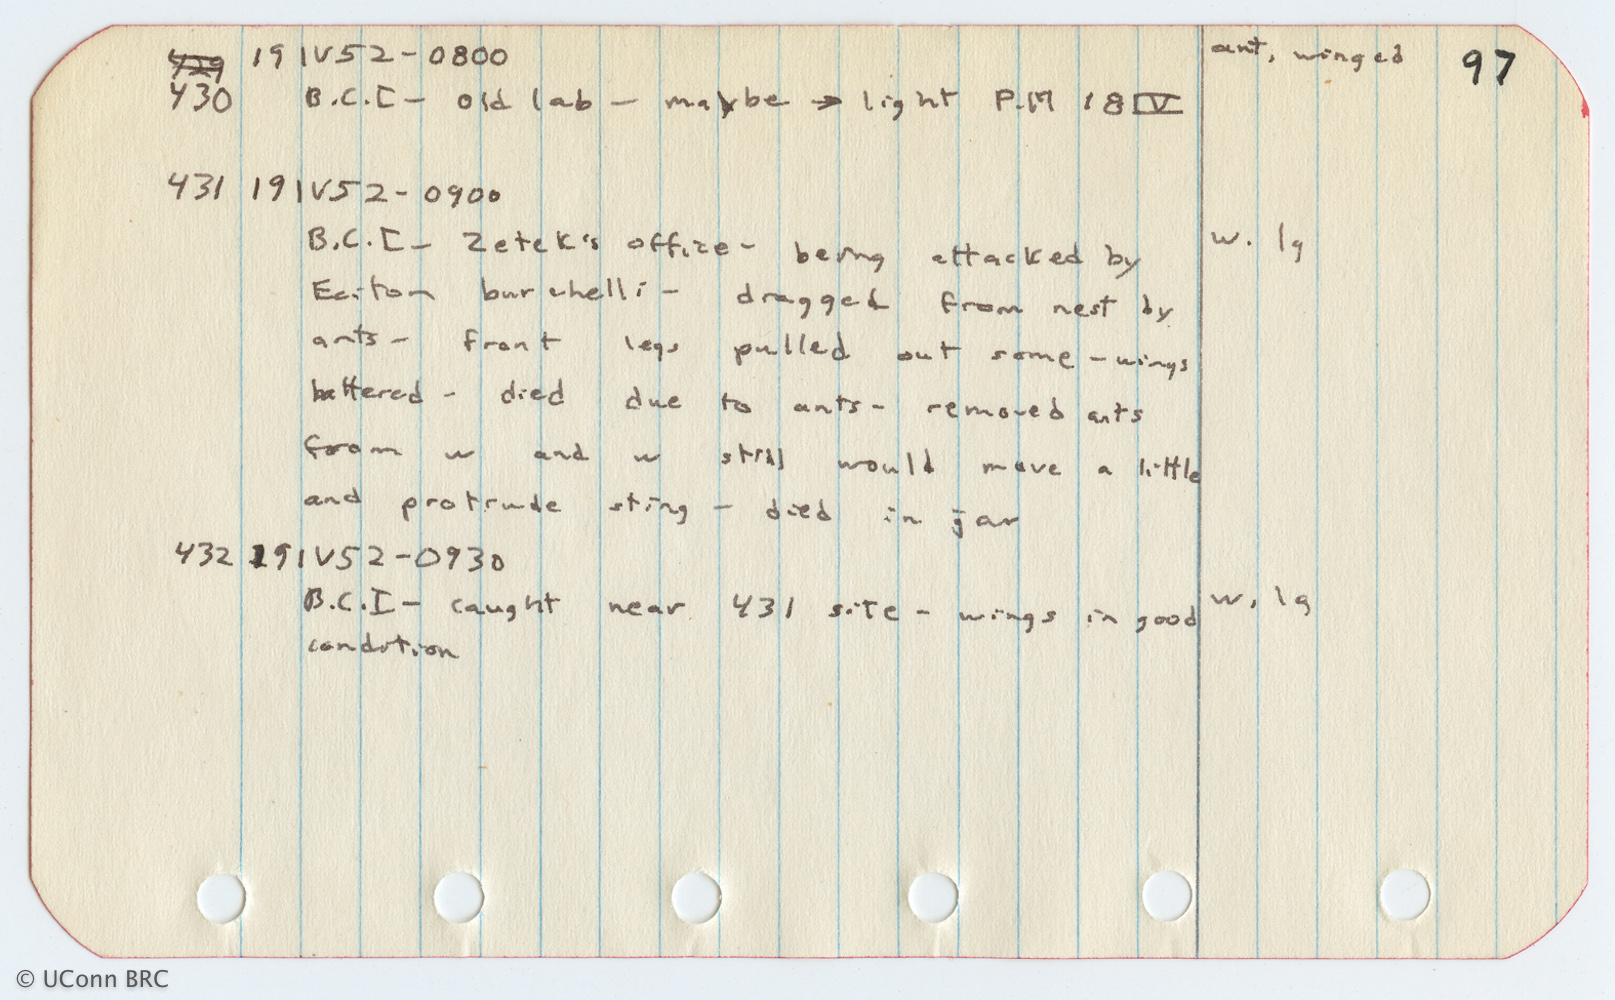 429 19IV52-0800 ant, winged 97
430 B.C.I- old lab - maybe → light P.M 18 IV
431 19IV52-0900
B.C.I- Zetek's office- being attacked by w. lg
Eciton burchelli- dragged from nest by
ants- front legs pulled out some-wings
battered- died due to ants- removed ants
from w and w still would move a little
and protrude sting - died in jar
432 19IV52-0930
B.C.I- caught near 431 site- wings in good w, lg
condition
© UConn BRC